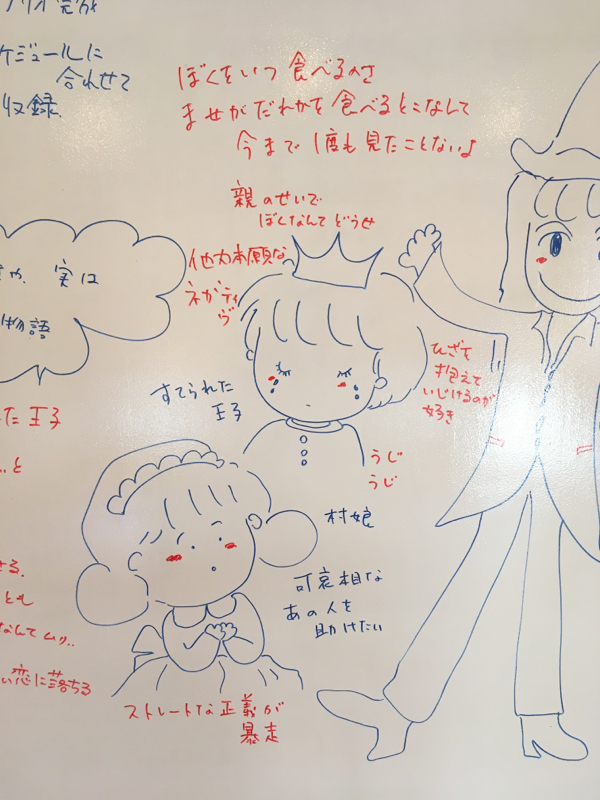 ケジュールに
合わせて
収録.
ぼくをいつ食べるのさ
ませがだれかを食べるとこなんて
今まで1度も見たことないよ
親のせいで
ぼくなんてどうせ
他力本願な
ネガティ
ヴ
実は
物語
すてられた
王子
ひざを
抱えて
いじけるのが
好き
た王子
うじ
うじ
…と
村娘
せる.
可哀相な
あの人を
助けたい
とも
なんてムリ..
い恋に落ちる
ストレートな正義が
暴走